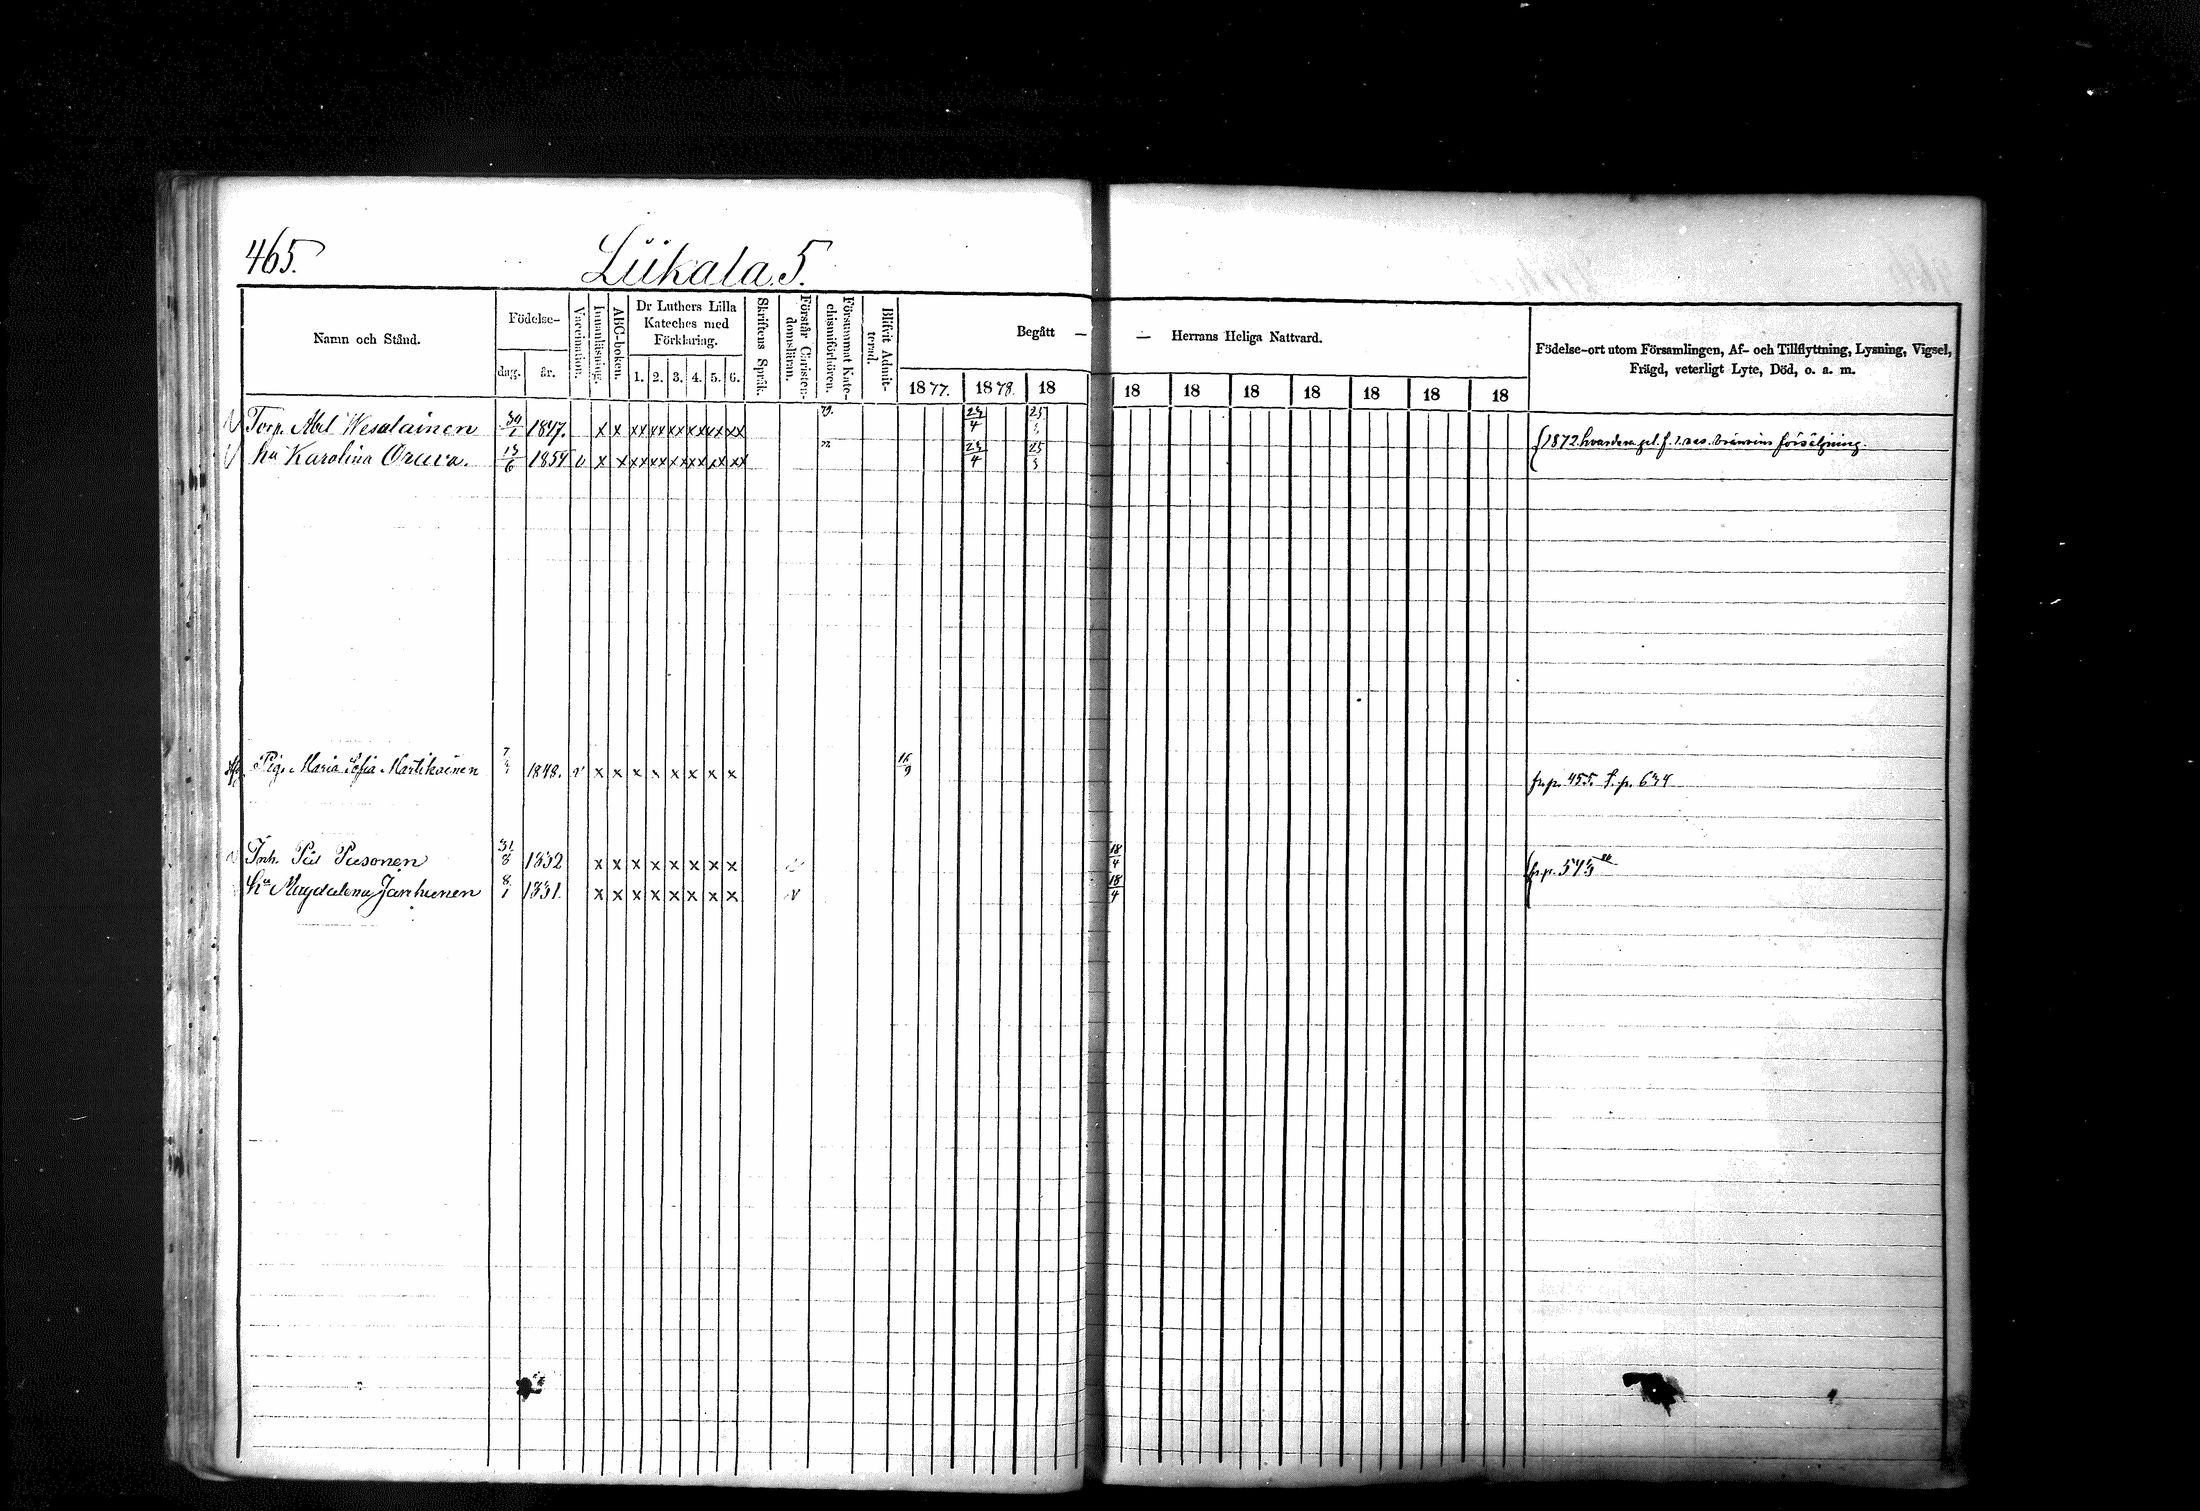 465. Liikala 5.
Namn och Stånd. Födelse- dag. år. Vaccination. Innanläsning. ABC-boken. Dr Luthers Lilla Kateches med Förklaring. 1. 2. 3. 4. 5. 6. Skriftens Språk. Förstår Christendomsläran. Försummat Katechismiförhören. Blifvit Admitterad. Begått — — Herrans Heliga Nattvard. Födelse-ort utom Församlingen, Af- och Tillflyttning, Lysning, Vigsel, Frägd, veterligt Lyte, Död, o. a. m.
1877. 1878. 18 18 18 18 18 18 18 18
Torp. Abel Wesalainen 1847. x x xx xx xx xx xx xx 79. 24/4 25
{1872 hvardera pl. f. 1. res. bränvins försäljning.
hu Karolina Oruva. 15/6 1854 v x x xx xx xx xx xx xx 24/4 25
Pig. Maria Sofia Martikainen 1848. v x x x x x x x x 16/9 fr. p. 455. t. p. 634
Inh. Pål Pusonen 31/8 1832 x x x x x x x x v 18/4 fr. p. 573
hu Magdalena Janhunen 8/1 1831. x x x x x x x x v 18/4